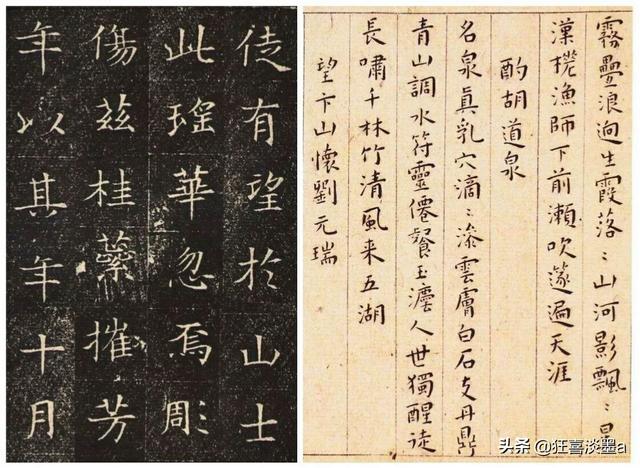 徒有望於山士
此瑶華忽焉彫
傷茲桂蘂摧芳
年以其年十月
霧疊浪迥生霞落〻山河影飄〻
漢槎漁師下前瀨吹篴遍天涯
酌胡道泉
名泉眞乳穴滴〻滲雲膚白石支丹鼎
青山調水符靈僊餐玉瀣人世獨醒徒
長嘯千林竹清風来五湖
望卞山懷劉元瑞
头条 @狂喜淡墨a